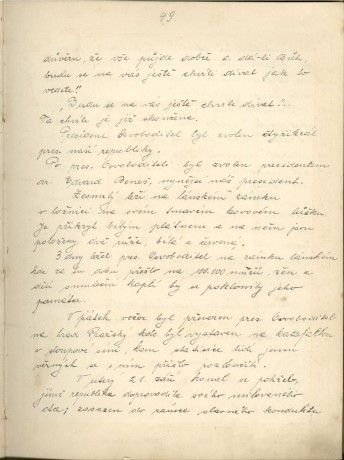 49.
důvěru, že vše půjde dobře a dá-li Bůh,
budu se na vás ještě chvíli dívat jak to
vedete!"
„Budu se na vás ještě chvíli dívat"...
Ta chvíle je již skončena.
President Osvoboditel byl zvolen čtyřikrát
pres. naší republiky.
Po pres. Osvoboditeli byl zvolen presidentem
dr. Edvard Beneš, nynější náš president.
Zesnulý leží na lánském zámku
v ložnici na svém tmavém kovovém lůžku.
Je přikryt bílým plátnem a na něm jsou
položeny dvě růže, bílá a červená.
3 dny ležel pres. Osvoboditel na zámku lánském
kde se mu přišlo na 100.000 mužů, žen a
dětí smutném kaplí by se poklonily jeho
památce.
V pátek večer byl převezen pres. Osvoboditel
na hrad Pražský kde byl vystaven na katafalku
v sloupové síni, kam statisíce lidu jemu
věrných se s ním přišlo rozloučiti.
V úterý 21. září konal se pohřeb,
jímž republika doprovodila svého milovaného
otce;